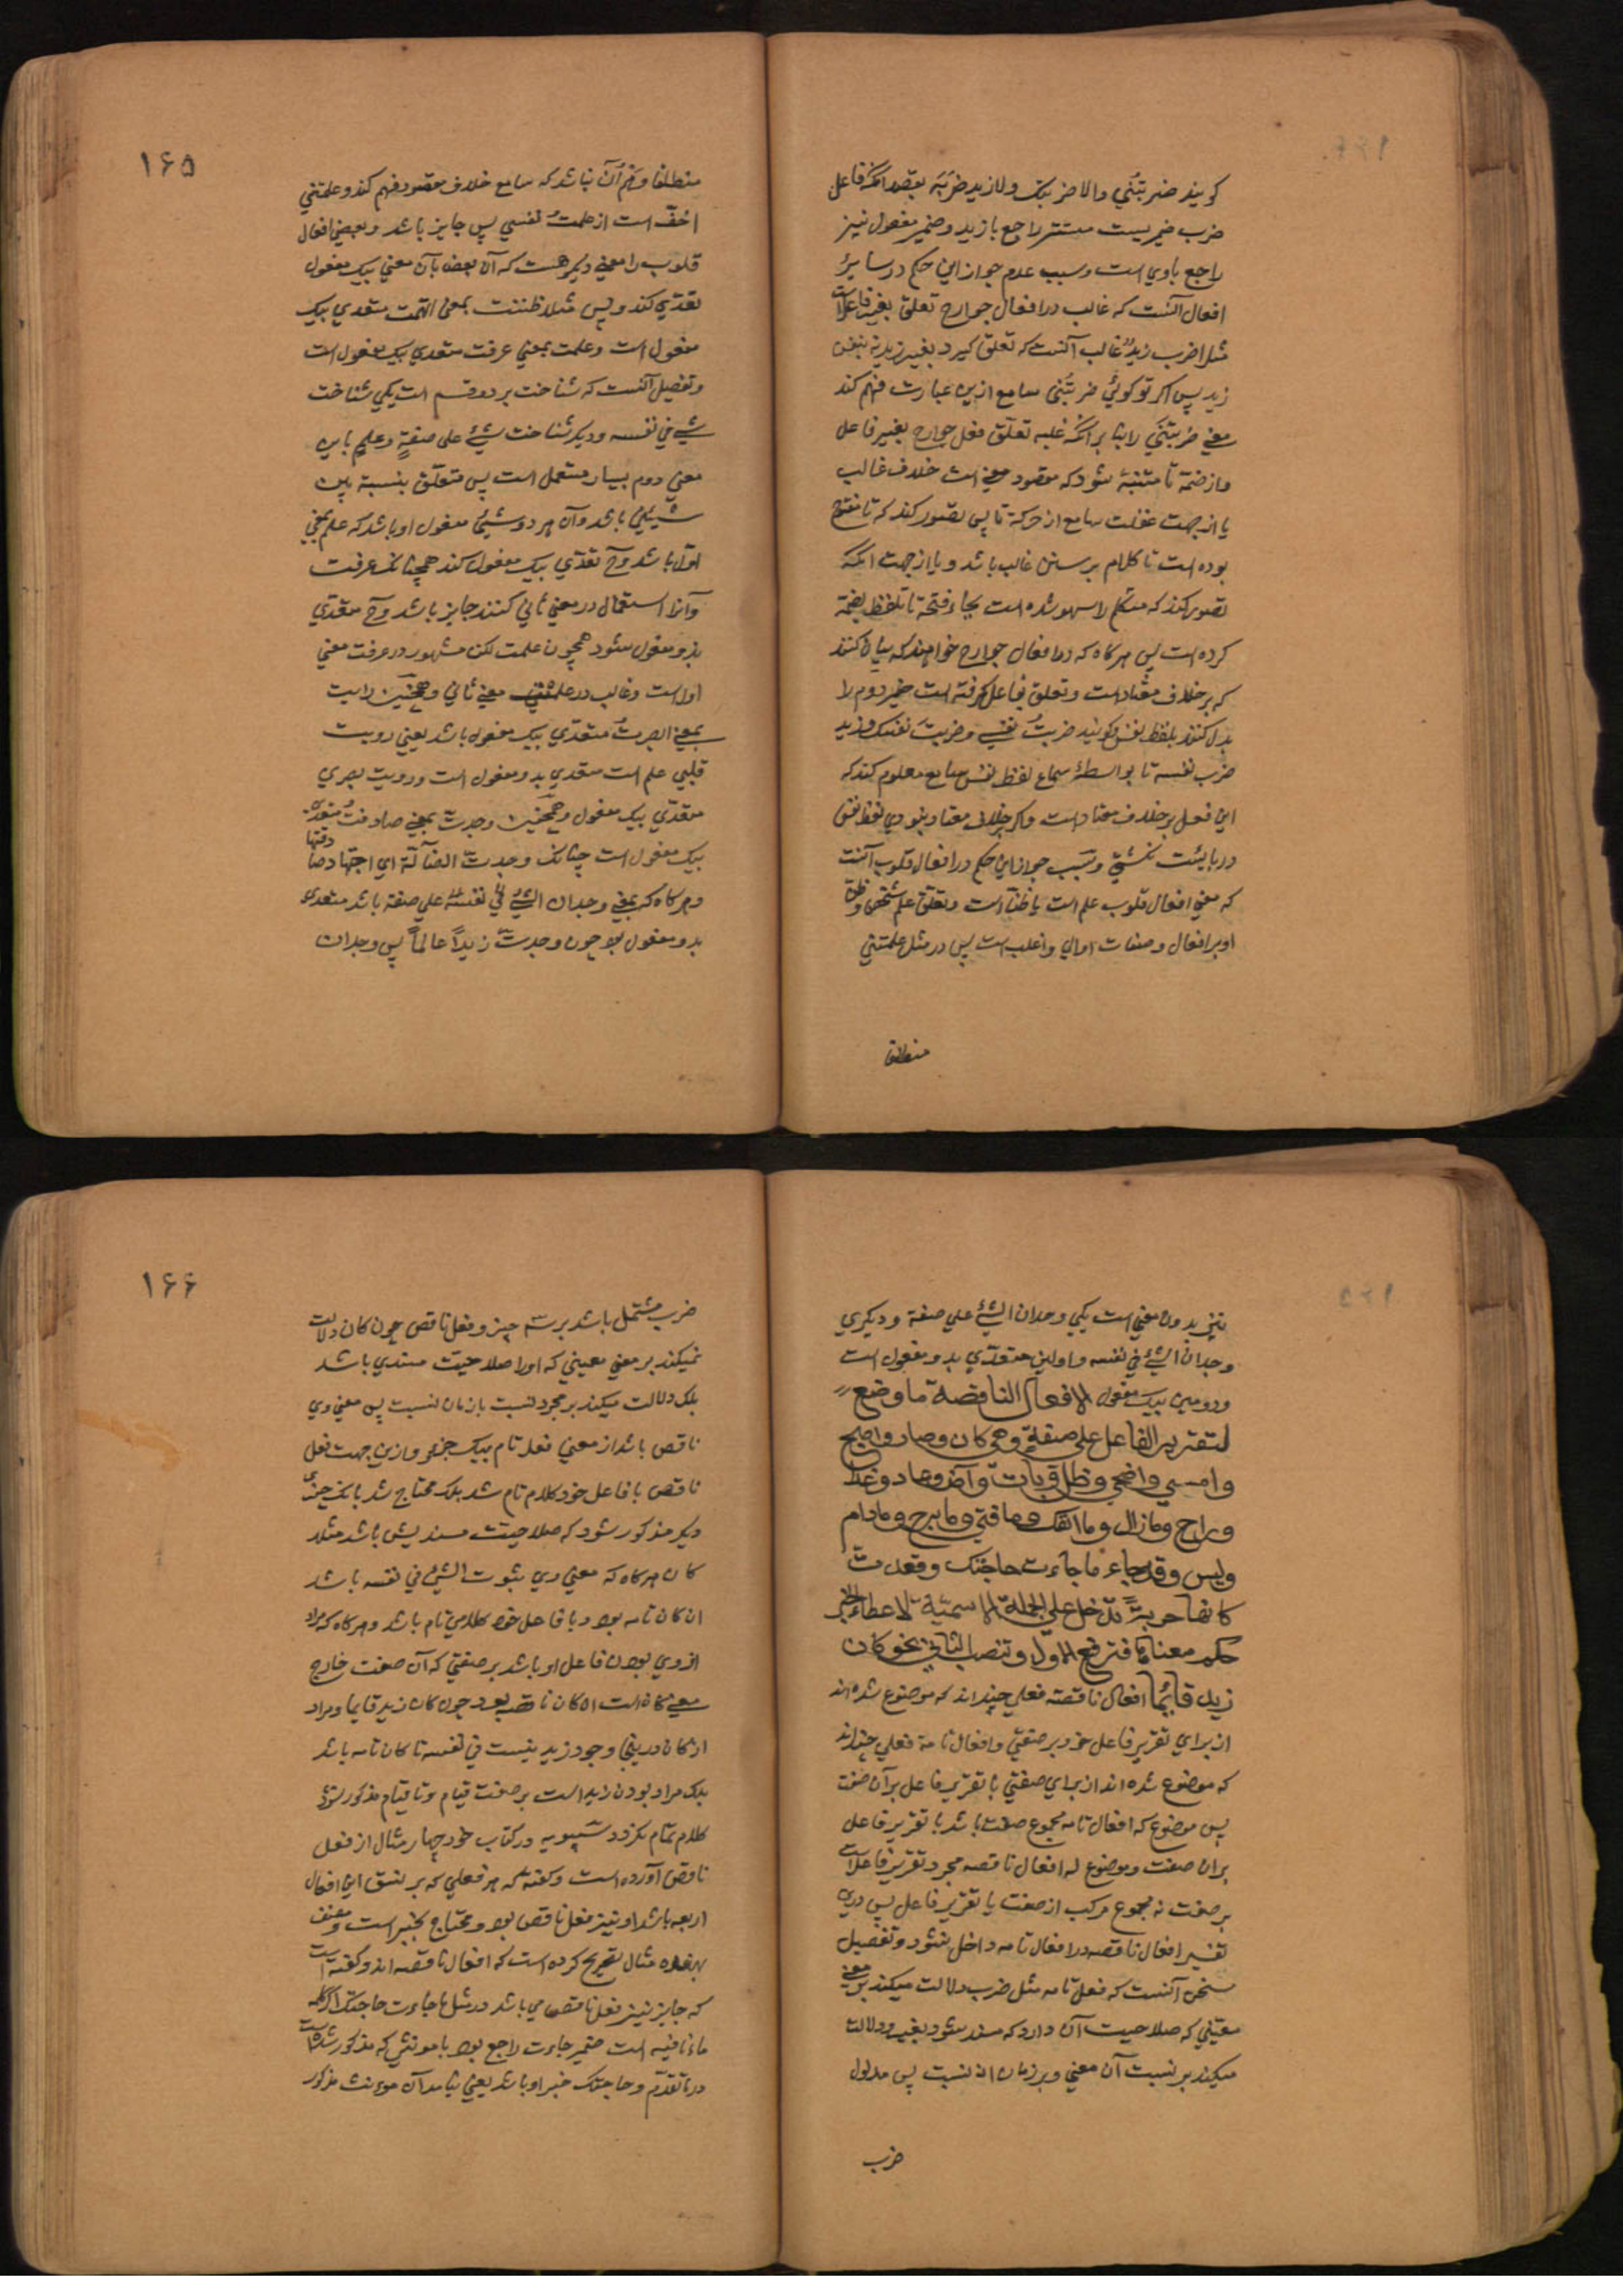 گویند ضربتُنی والا ضربتک ولا زید ضربَه بقصد انکه فاعل
ضرب ضمیریست مستتر راجع بازید وضمیر مفعول نیز
راجع باوی است وسبب عدم جواز این حکم در سایر
افعال آنست که غالب در افعال جوارح تعلق بغیر فاعل است
مثلا ضرب زیدٌ غالب آنست که تعلق کیرد بغیر زید نه بنفس
زید پس اکر تو کوئی ضربتُنی سامع ازین عبارت فهم کند
معنی ضربتَنی را بنا بر انکه غلبه تعلّق فعل جوارح بغیر فاعل
واز ضمّة تا متنبّه نشود که مقصود معنی است خلاف غالب
یا از جهت غفلت سامع از حرکة تا پس تصور کند که تا مفتوح
بوده است تا کلام بر سنن غالب باشد ویا از جهت انکه
تصور کند که متکلم را سهو شده است بجاء فتحة تا تلفظ بضمّة
کرده است پس هرکاه که در افعال جوارح خواهند که بیان کنند
که بر خلاف معتاد است وتعلق بفاعل کرفته است ضمیر دوم را
بدل کنند بلفظ نفس وکویند ضربتُ نفسی وضربتَ نفسک وزید
ضرب نفسه تا بواسطهٔ سماع لفظ نفس سامع معلوم کند که
این فعل بر خلاف معتاد است واکر بر خلاف معتاد نبودی لفظ نفس
دربایست نکشتی وسبب جواز این حکم در افعال قلوب آنست
که معنی افعال قلوب علم است یا ظنّ است وتعلّق علم شخص وظن
او بر افعال وصفات او اولی واغلب است پس در مثل علمتنی
منطلقا
۱۶۵
منطلقا وهم آن نباشد که سامع خلاف مقصود فهم کند وعلمتنی
اخفّ است از علمتُ نفسی پس جایز باشد وبعضی افعال
قلوب را معنی دیکر هست که آن بعض بآن معنی بیک مفعول
تعدّی کند وبس مثلا ظننت بمعنی اتهمت متعدی بیک
مفعول است وعلمت بمعنی عرفت متعدی بیک مفعول است
وتفصیل آنست که شناخت بر دو قسم است یکی شناخت
شیء فی نفسه ودیکر شناخت شیء علی صفةٍ وعلم باین
معنی دوم بسیار مستعمل است پس متعلّق بنسبة بین
شیئین باشد وآن هر دو شیء مفعول او باشد که علم بمعنی
اوّل باشد وح تعدّی بیک مفعول کند همچنانک عرفت
وآنرا استعمال در معنی ثانی کنند جایز باشد وح متعدّی
بدو مفعول شود همچون علمت لکن مشهور در عرفت معنی
اول است وغالب در علمت معنی ثانی وهمچنین رایت
بمعنی ابصرتُ متعدّی بیک مفعول باشد یعنی رویت
قلبی علم است متعدی بدو مفعول است ورویت بصری
متعدّی بیک مفعول وهمچنین وجدت بمعنی صادفتُ متعدی
بیک مفعول است چنانک وجدت الضّالّة ای اصادفتها
وهرکاه که بمعنی وجدان الشیء فی نفسه علی صفة باشد متعدی
بدو مفعول بود چون وجدت زیداً عالماً پس وجدان
نیز بدو معنی است یکی وجدان الشیء علی صفة ودیکری
وجدان الشیء فی نفسه واولین متعدّی بدو مفعول است
ودومین بیک مفعول الافعال الناقصة ما وضع
لتقریر الفاعل علی صفةٍ وهی کان وصار واصبح
وامسی واضحی وظل وبات وآض وعاد وغدا
وراح ومازال وما انفک وما فتئ وما برح ومادام
ولیس وقد جاء ما جاءت حاجتک وقعدت
کانها حربة تدخل علی الجملة الاسمیّة لاعطاء الخبر
حکم معناها فترفع الاول وتنصب الثانی نحو کان
زید قائما افعال ناقصه فعلی چند اند که موضوع شده اند
از برای تقریر فاعل خود بر صفتی وافعال تامة فعلی چند اند
که موضوع شده اند از برای صفتی با تقریر فاعل بر آن صفت
پس موضوع له افعال تامه مجموع صفت باشد با تقریر فاعل
بر آن صفت وموضوع له افعال ناقصه مجرد تقریر فاعل است
بر صفت نه مجموع مرکب از صفت با تقریر فاعل پس درین
تفسیر افعال ناقصه در افعال تامه داخل نشود وتفصیل
سخن آنست که فعل تامه مثل ضرب دلالت میکند بر معنی
معیّنی که صلاحیت آن دارد که مسند شود بغیر ودلالت
میکند بر نسبت آن معنی وبر زمان آن نسبت پس مدلول
ضرب
۱۶۶
ضرب مشتمل باشد بر سه چیز وفعل ناقص چون کان دلالت
نمیکند بر معنی معینی که اورا صلاحیّت مسندی باشد
بلک دلالت میکند بر مجرد نسبت با زمان نسبت پس معنی وی
ناقص باشد از معنی فعل تام بیک جزو وازین جهت فعل
ناقص با فاعل خود کلام تام نشد بلک محتاج شد بانک چیزی
دیکر مذکور شود که صلاحیّت مسندیش باشد مثلا
کان هرکاه که معنی وی ثبوت الشیء فی نفسه باشد
ان کان تامه بود وبا فاعل خود کلامی تام باشد وهرکاه که مراد
از وی بودن فاعل او باشد بر صفتی که آن صفت خارج
معنی کان است ان کان ناقصه بود چون کان زید قایما ومراد
از کان درینجا وجود زید نیست فی نفسه تا کان تامه باشد
بلک مراد بودن زید است بر صفت قیام وتا قیام مذکور نشود
کلام تمام نکردد سیبویه در کتاب خود چهار مثال از فعل
ناقص آورده است وکفته که هر فعلی که بر نسق این افعال
اربعه باشد او نیز فعل ناقص بود ومحتاج بخبر است ومصنف
بهفده مثال تصریح کرده است که افعال ناقصه اند وکفته است
که جایز نیز فعل ناقص می باشد در مثل ما جاءت حاجتک اکر کلمه
ماء نافیه است ضمیر جاءت راجع بود با مونثی که مذکور شده است
در ما تقدّم وحاجتک خبر او باشد یعنی نیامد آن موءنث مذکور